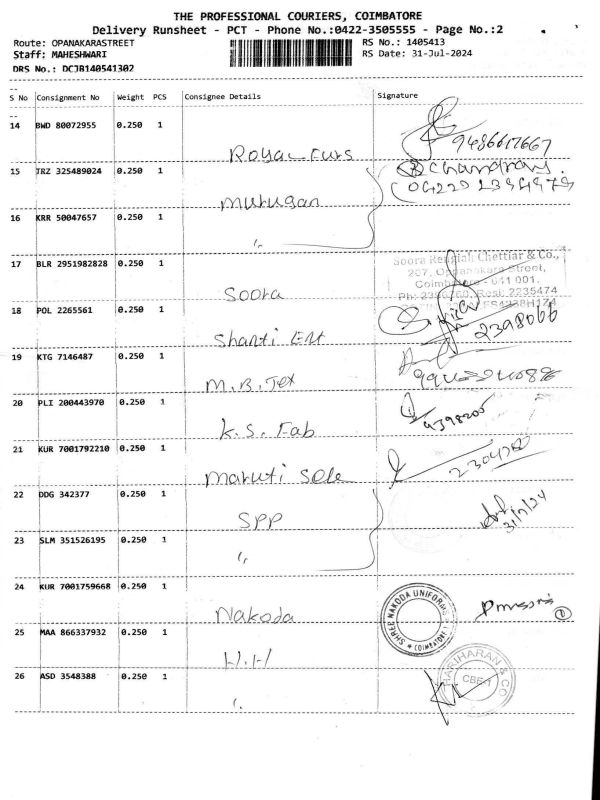 THE PROFESSIONAL COURIERS, COIMBATORE
Delivery Runsheet - PCT - Phone No.:0422-3505555 - Page No.:2
Route: OPANAKARASTREET RS No.: 1405413
Staff: MAHESHWARI RS Date: 31-Jul-2024
DRS No.: DCJB140541302
S No Consignment No Weight PCS Consignee Details Signature
14 BWD 80072955 0.250 1
Royal Furs 9486617667
15 TRZ 325489024 0.250 1
Chandran
Murugan
16 KRR 50047657 0.250 1
17 BLR 2951982828 0.250 1
Soora Rengiah Chettiar & Co.,
207, Oppanakara Street,
Coimbatore - 641 001.
Soora
18 POL 2265561 0.250 1
Shanti Ent 2398066
19 KTG 7146487 0.250 1
M.B. Tex
20 PLI 200443970 0.250 1
K.S. Fab
21 KUR 7001792210 0.250 1
Maruti Sele
22 DDG 342377 0.250 1
SPP 31/7/24
23 SLM 351526195 0.250 1
24 KUR 7001759668 0.250 1
Nakoda
SHREE NAKODA UNIFORMS
* COIMBATORE *
25 MAA 866337932 0.250 1
H.H
HARIHARAN & CO
CBE-1
26 ASD 3548388 0.250 1